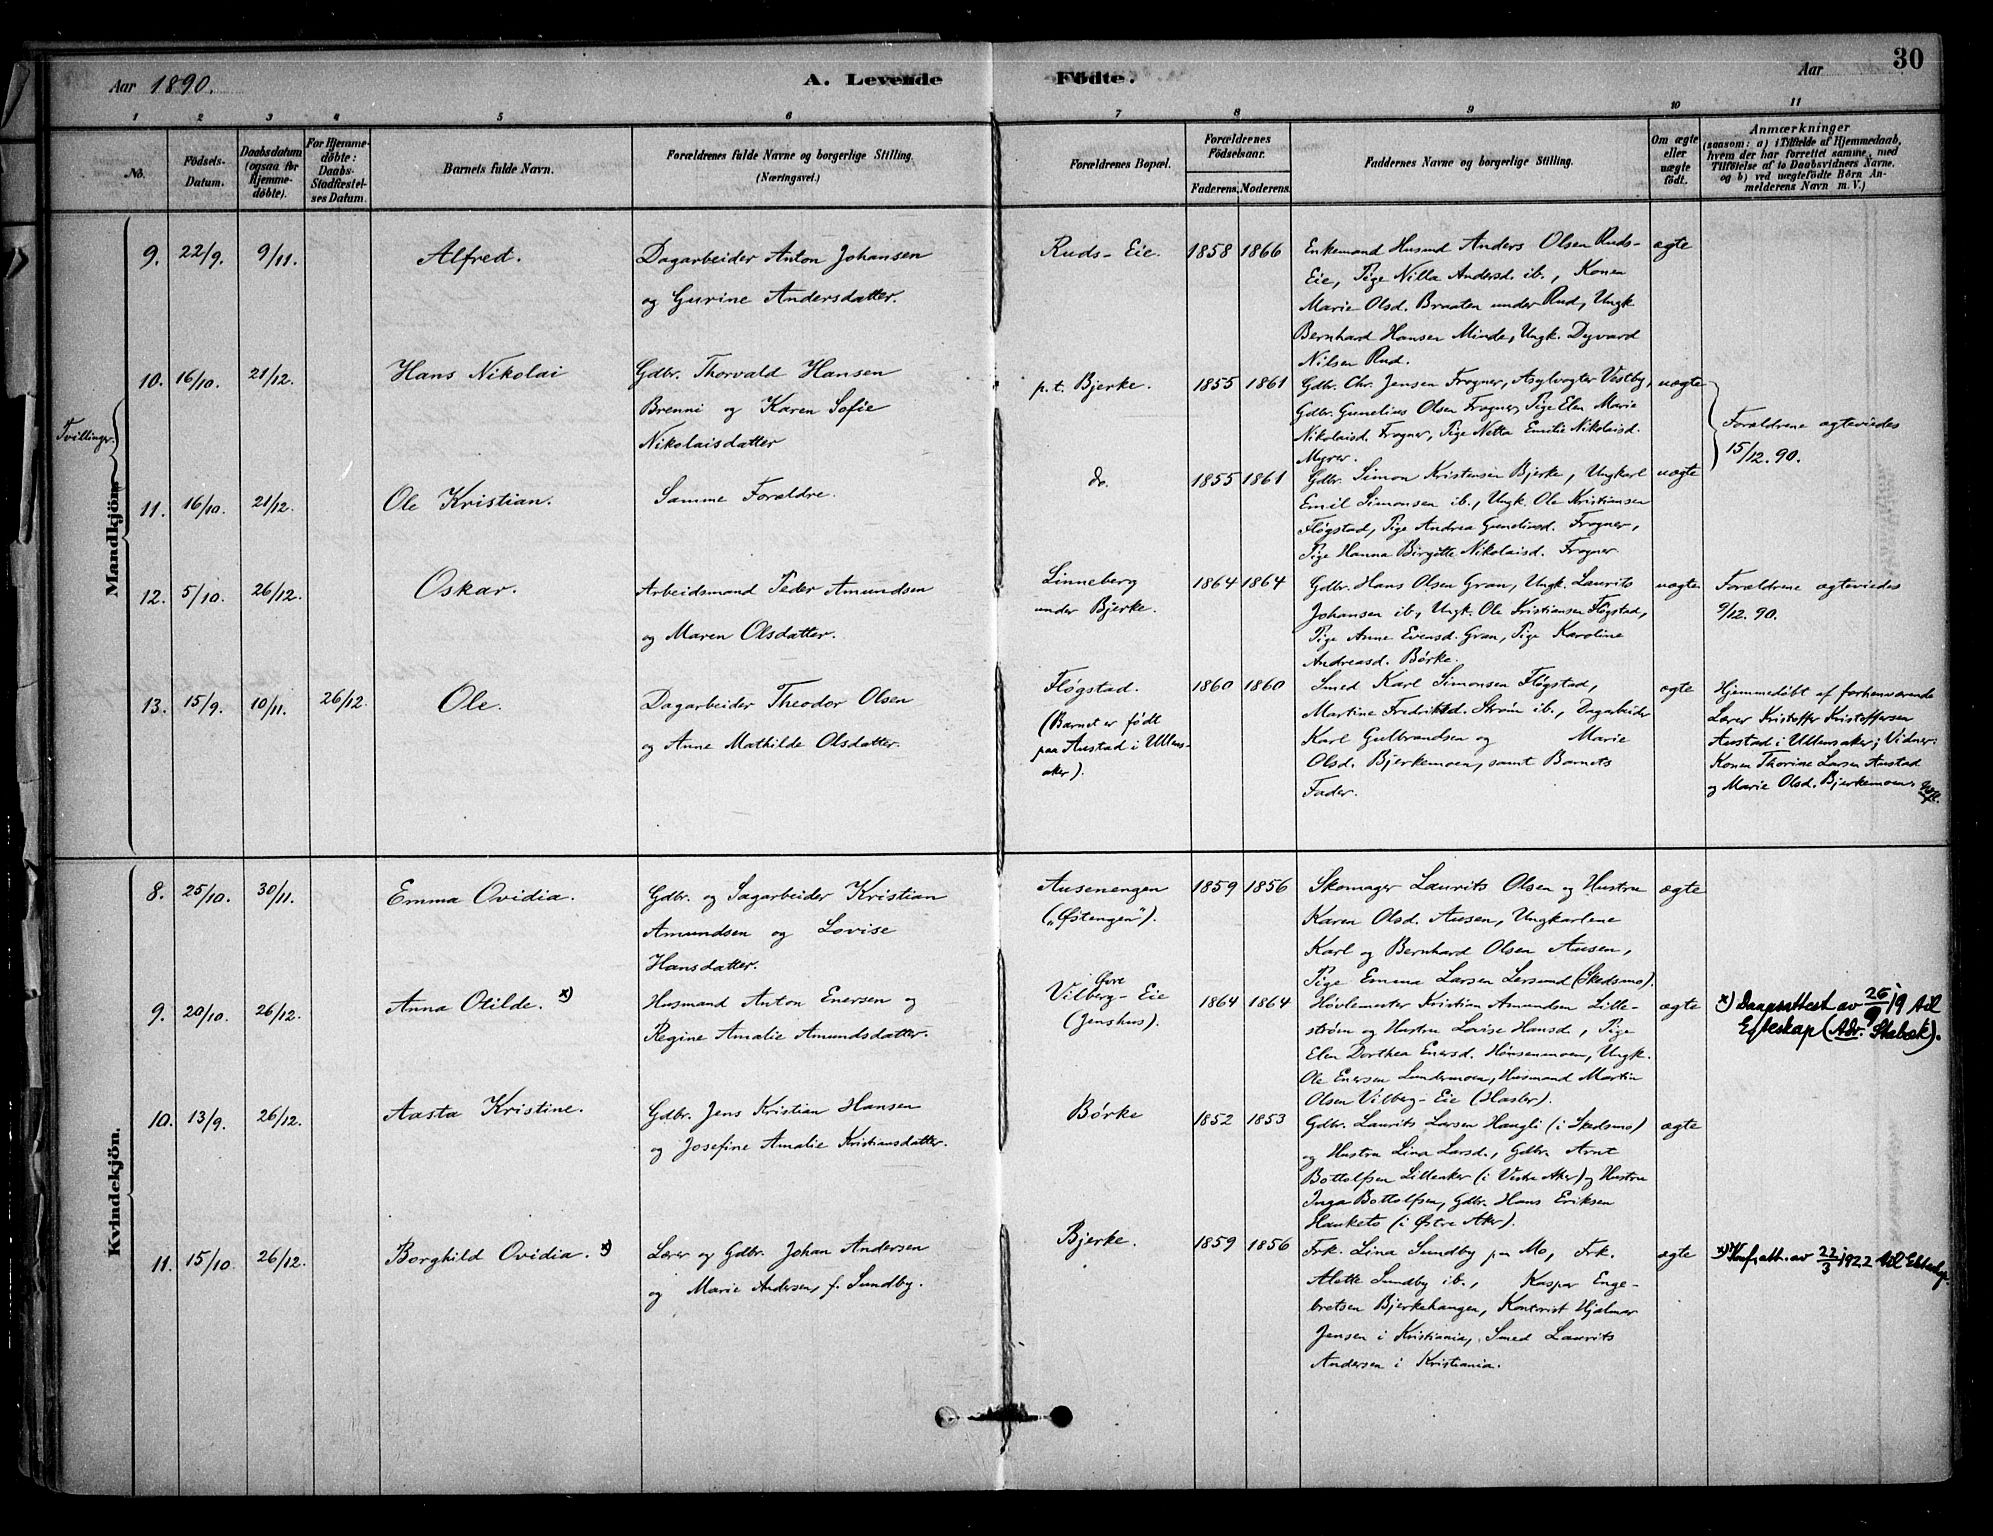 30
Aar 1890.
A. Levende
Fødte.
Aar
1 2 3 4 5 6 7 8 9 10 11
No.
Fødsels-
Datum.
Daabsdatum
(ogsaa for
Hjemme-
døbte).
For Hjemme-
døbte:
Daabs-
Stadfæstel-
ses Datum.
Barnets fulde Navn.
Forældrenes fulde Navne og borgerlige Stilling.
(Næringsvei.)
Forældrenes Bopæl.
Forældrenes
Fødselsaar.
Faderens. Moderens.
Faddernes Navne og borgerlige Stilling.
Om ægte
eller
uægte
født.
Anmærkninger
(saasom: a) i Tilfælde af Hjemmedaab,
hvem der har forrettet samme, med
Tilføielse af to Daabsvidners Navne.
og b) ved uægtefødte Børn An-
melderens Navn m. V.)
Mandkjøn.
9. 22/9. 9/11. Alfred.
Dagarbeider Anton Johansen
og Gurine Andersdatter.
Ruds-Eie. 1858 1866
Enkemand Husmd Anders Olsen Ruds-
Eie, Pige Nilla Andersd. ib., Konen
Marie Olsd. Braaten under Rud, Ungk.
Bernhard Hansen Minde, Ungk. Dyvard
Nilsen Rud.
ægte
Tvillinger.
10. 16/10. 21/12. Hans Nikolai
Gdbr. Thorvald Hansen
Brenni og Karen Sofie
Nikolaisdatter
p.t. Bjerke. 1855 1861
Gdbr. Chr. Jensen Frogner, Asylvogter Vestby,
Gdbr. Gunelius Olsen Frogner, Pige Elen Marie
Nikolaisd. Frogner, Pige Netta Emilie Nikolaisd.
Myrer.
uægte
Forældrene ægteviedes
15/12. 90.
11. 16/10. 21/12. Ole Kristian.
Samme Forældre.
do. 1855 1861
Gdbr. Simon Kristensen Bjerke, Ungkarl
Emil Simonsen ib., Ungk. Ole Kristiansen
Fløgstad, Pige Andrea Guneliusd. Frogner,
Pige Hanna Birgitte Nikolaisd. Frogner
uægte
12. 5/10. 26/12. Oskar.
Arbeidsmand Peder Amundsen
og Maren Olsdatter.
Linneberg
under Bjerke.
1864 1864
Gdbr. Hans Olsen Gran, Ungk. Laurits
Johansen ib., Ungk. Ole Kristiansen Fløgstad,
Pige Anne Evensd. Gran, Pige Karoline
Andreasd. Børke.
uægte
Forældrene ægteviedes
9/12. 90.
13. 15/9. 10/11. 26/12. Ole.
Dagarbeider Theodor Olsen
og Anne Mathilde Olsdatter.
Fløgstad.
(Barnet er født
paa Austad i Ullens-
aker).
1860 1860
Smed Karl Simonsen Fløgstad,
Martine Fredriksd. Strøm ib., Dagarbeider
Karl Gulbrandsen og Marie
Olsd. Bjerkemoen, samt Barnets
Fader.
ægte
Hjemmedøbt af forhenværende
Lærer Kristoffer Kristoffersen
Austad i Ullensaker; Vidner:
Konen Thorine Larsen Austad
og Marie Olsd. Bjerkemoen.
Kvindekjøn.
8. 25/10. 30/11. Emma Ovidia.
Gdbr. og Sagarbeider Kristian
Amundsen og Lovise
Hansdatter.
Ausenengen
("Østengen").
1859 1856
Skomager Laurits Olsen og Hustru
Karen Olsd. Ausen, Ungkarlene
Karl og Bernhard Olsen Ausen,
Pige Emma Larsen Lersund (Skedsmo).
ægte
9. 20/10. 26/12. Anna Otilde. x)
Husmand Anton Enersen og
Regine Amalie Amundsdatter.
Øvre
Vilberg-Eie
(Jenshus).
1864 1864
Høvlemester Kristian Amundsen Lille-
strøm og Hustru Lovise Hansd., Pige
Elen Dorthea Enersd. Hønsenmoen, Ungk.
Ole Enersen Lundermoen, Husmand Martin
Olsen Vilberg-Eie (Hasler).
ægte
x) Daapsattest av 26/9 19 til
Egteskap (Adr. Stabæk).
10. 13/9. 26/12. Aasta Kristine.
Gdbr. Jens Kristian Hansen
og Josefine Amalie Kristiansdatter.
Børke 1852 1853
Gdbr. Laurits Larsen Haugli (i Skedsmo)
og Hustru Lina Larsd., Gdbr. Arnt
Bottolfsen Lilleaker (i Vestre Aker) og Hustru
Inga Bottolfsen, Gdbr. Hans Eriksen
Hauketo (i Østre Aker).
ægte
11. 15/10. 26/12. Borghild Ovidia. x)
Lærer og Gdbr. Johan Andersen
og Marie Andersen, f. Sundby.
Bjerke. 1859 1856
Frk. Lina Sundby paa Mo, Frk.
Alette Sundby ib., Kaspar Enge-
bretsen Bjerkehaugen, Kontorist Hjalmar
Jensen i Kristiania, Smed Laurits
Andersen i Kristiania.
ægte
x) Konf.att. av 22/3 1922 til Ekteskap.